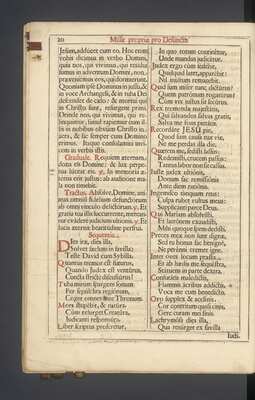 20
Missæ propriæ pro Defunctis
Jesum, adducet cum eo. Hoc enim
vobis dicimus in verbo Domini,
quia nos, qui vivimus, qui residui
sumus in adventum Domini, non
præveniemus eos, qui dormierunt.
Quoniam ipse Dominus in jussu, &
in voce Archangeli, & in tuba Dei
descendet de cælo: & mortui qui
in Christo sunt, resurgent primi.
Deinde nos, qui vivimus, qui re-
linquimur, simul rapiemur cum il-
lis in nubibus obviam Christo in
aera, & sic semper cum Domino
erimus. Itaque consolamini invi-
cem in verbis istis.
Graduale. Requiem æternam
dona eis Domine: & lux perpe-
tua luceat eis. In memoria æ-
terna erit justus: ab auditione ma-
la non timebit.
Tractus. Absolve, Domine, ani-
mas omnium fidelium defunctorum
ab omni vinculo delictorum. Et
gratia tua illis succurrente, merean-
tur evadere judicium ultionis. Et
lucis æternæ beatitudine perfrui.
Sequentia.
Dies iræ, dies illa,
Solvet sæclum in favilla:
Teste David cum Sybilla.
Quantus tremor est futurus,
Quando Judex est venturus,
Cuncta stricte discussurus!
Tuba mirum spargens sonum
Per sepulchra regionum,
Coget omnes ante Thronum.
Mors stupebit, & natura,
Cum resurget Creatura,
Judicanti responsura.
Liber scriptus proferetur,
In quo totum continetur,
Unde mundus judicetur.
Judex ergo cum sedebit,
Quidquid latet, apparebit:
Nil inultum remanebit.
Quid sum miser tunc dicturus?
Quem patronum rogaturus?
Cum vix justus sit securus.
Rex tremendæ majestatis,
Qui salvandos salvas gratis,
Salva me fons pietatis.
Recordare JESU pie,
Quod sum causa tuæ viæ,
Ne me perdas illa die.
Quærens me, sedisti lassus:
Redemisti, crucem passus:
Tantus labor non sit cassus.
Juste judex ultionis,
Donum fac remissionis
Ante diem rationis.
Ingemisco tanquam reus:
Culpa rubet vultus meus:
Supplicanti parce Deus.
Qui Mariam absolvisti,
Et latronem exaudisti,
Mihi quoque spem dedisti.
Preces meæ non sunt dignæ,
Sed tu bonus fac benigne,
Ne perenni cremer igne.
Inter oves locum præsta,
Et ab hædis me sequestra,
Statuens in parte dextra.
Confutatis maledictis,
Flammis acribus addictis,
Voca me cum benedictis.
Oro supplex & acclinis,
Cor contritum quasi cinis,
Gere curam mei finis.
Lachrymosa dies illa,
Qua resurget ex favilla
Judi-